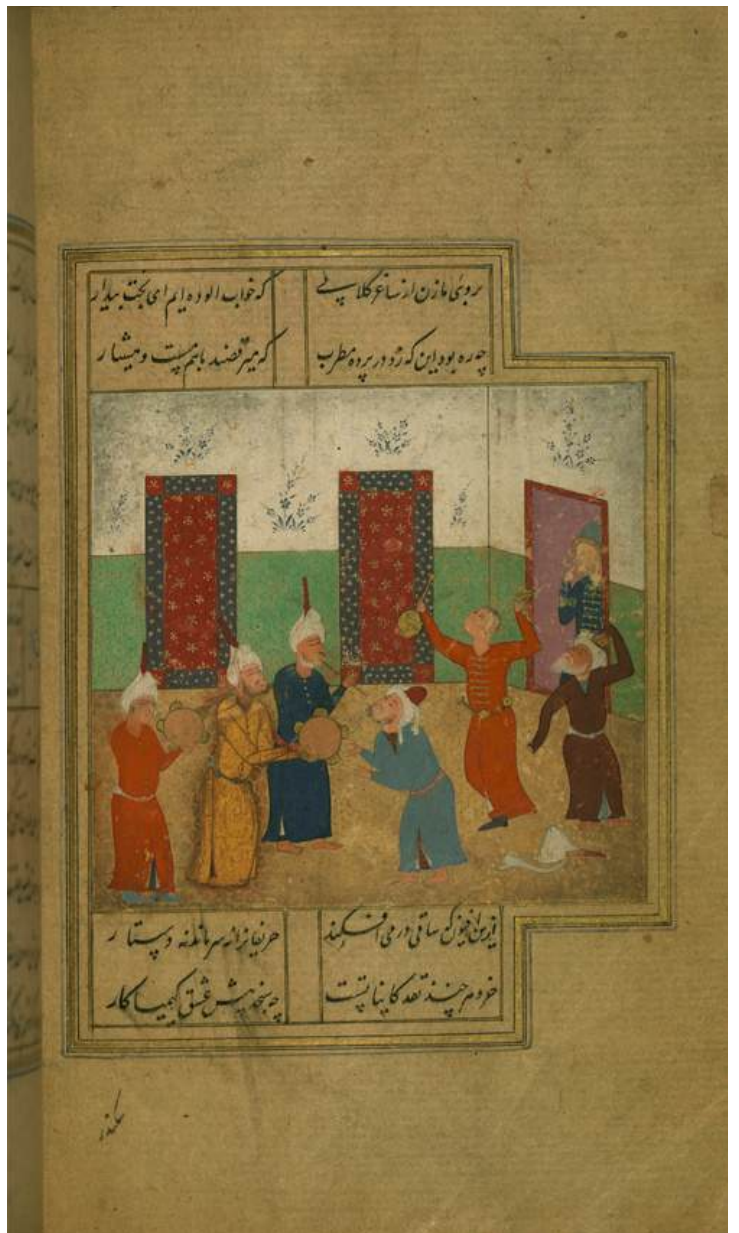 بروی ما زن از ساغر گلابی که خواب الوده ایم ای بخت بیدار
چه ره بود این که زد در پرده مطرب که میرقصند باهم مست و هشیار
ازین افیون که ساقی در می افکند حریفانرا نه سر ماند نه دستار
خرد هر چند نقد کایناتست چه سنجد پیش عشق کیمیا کار